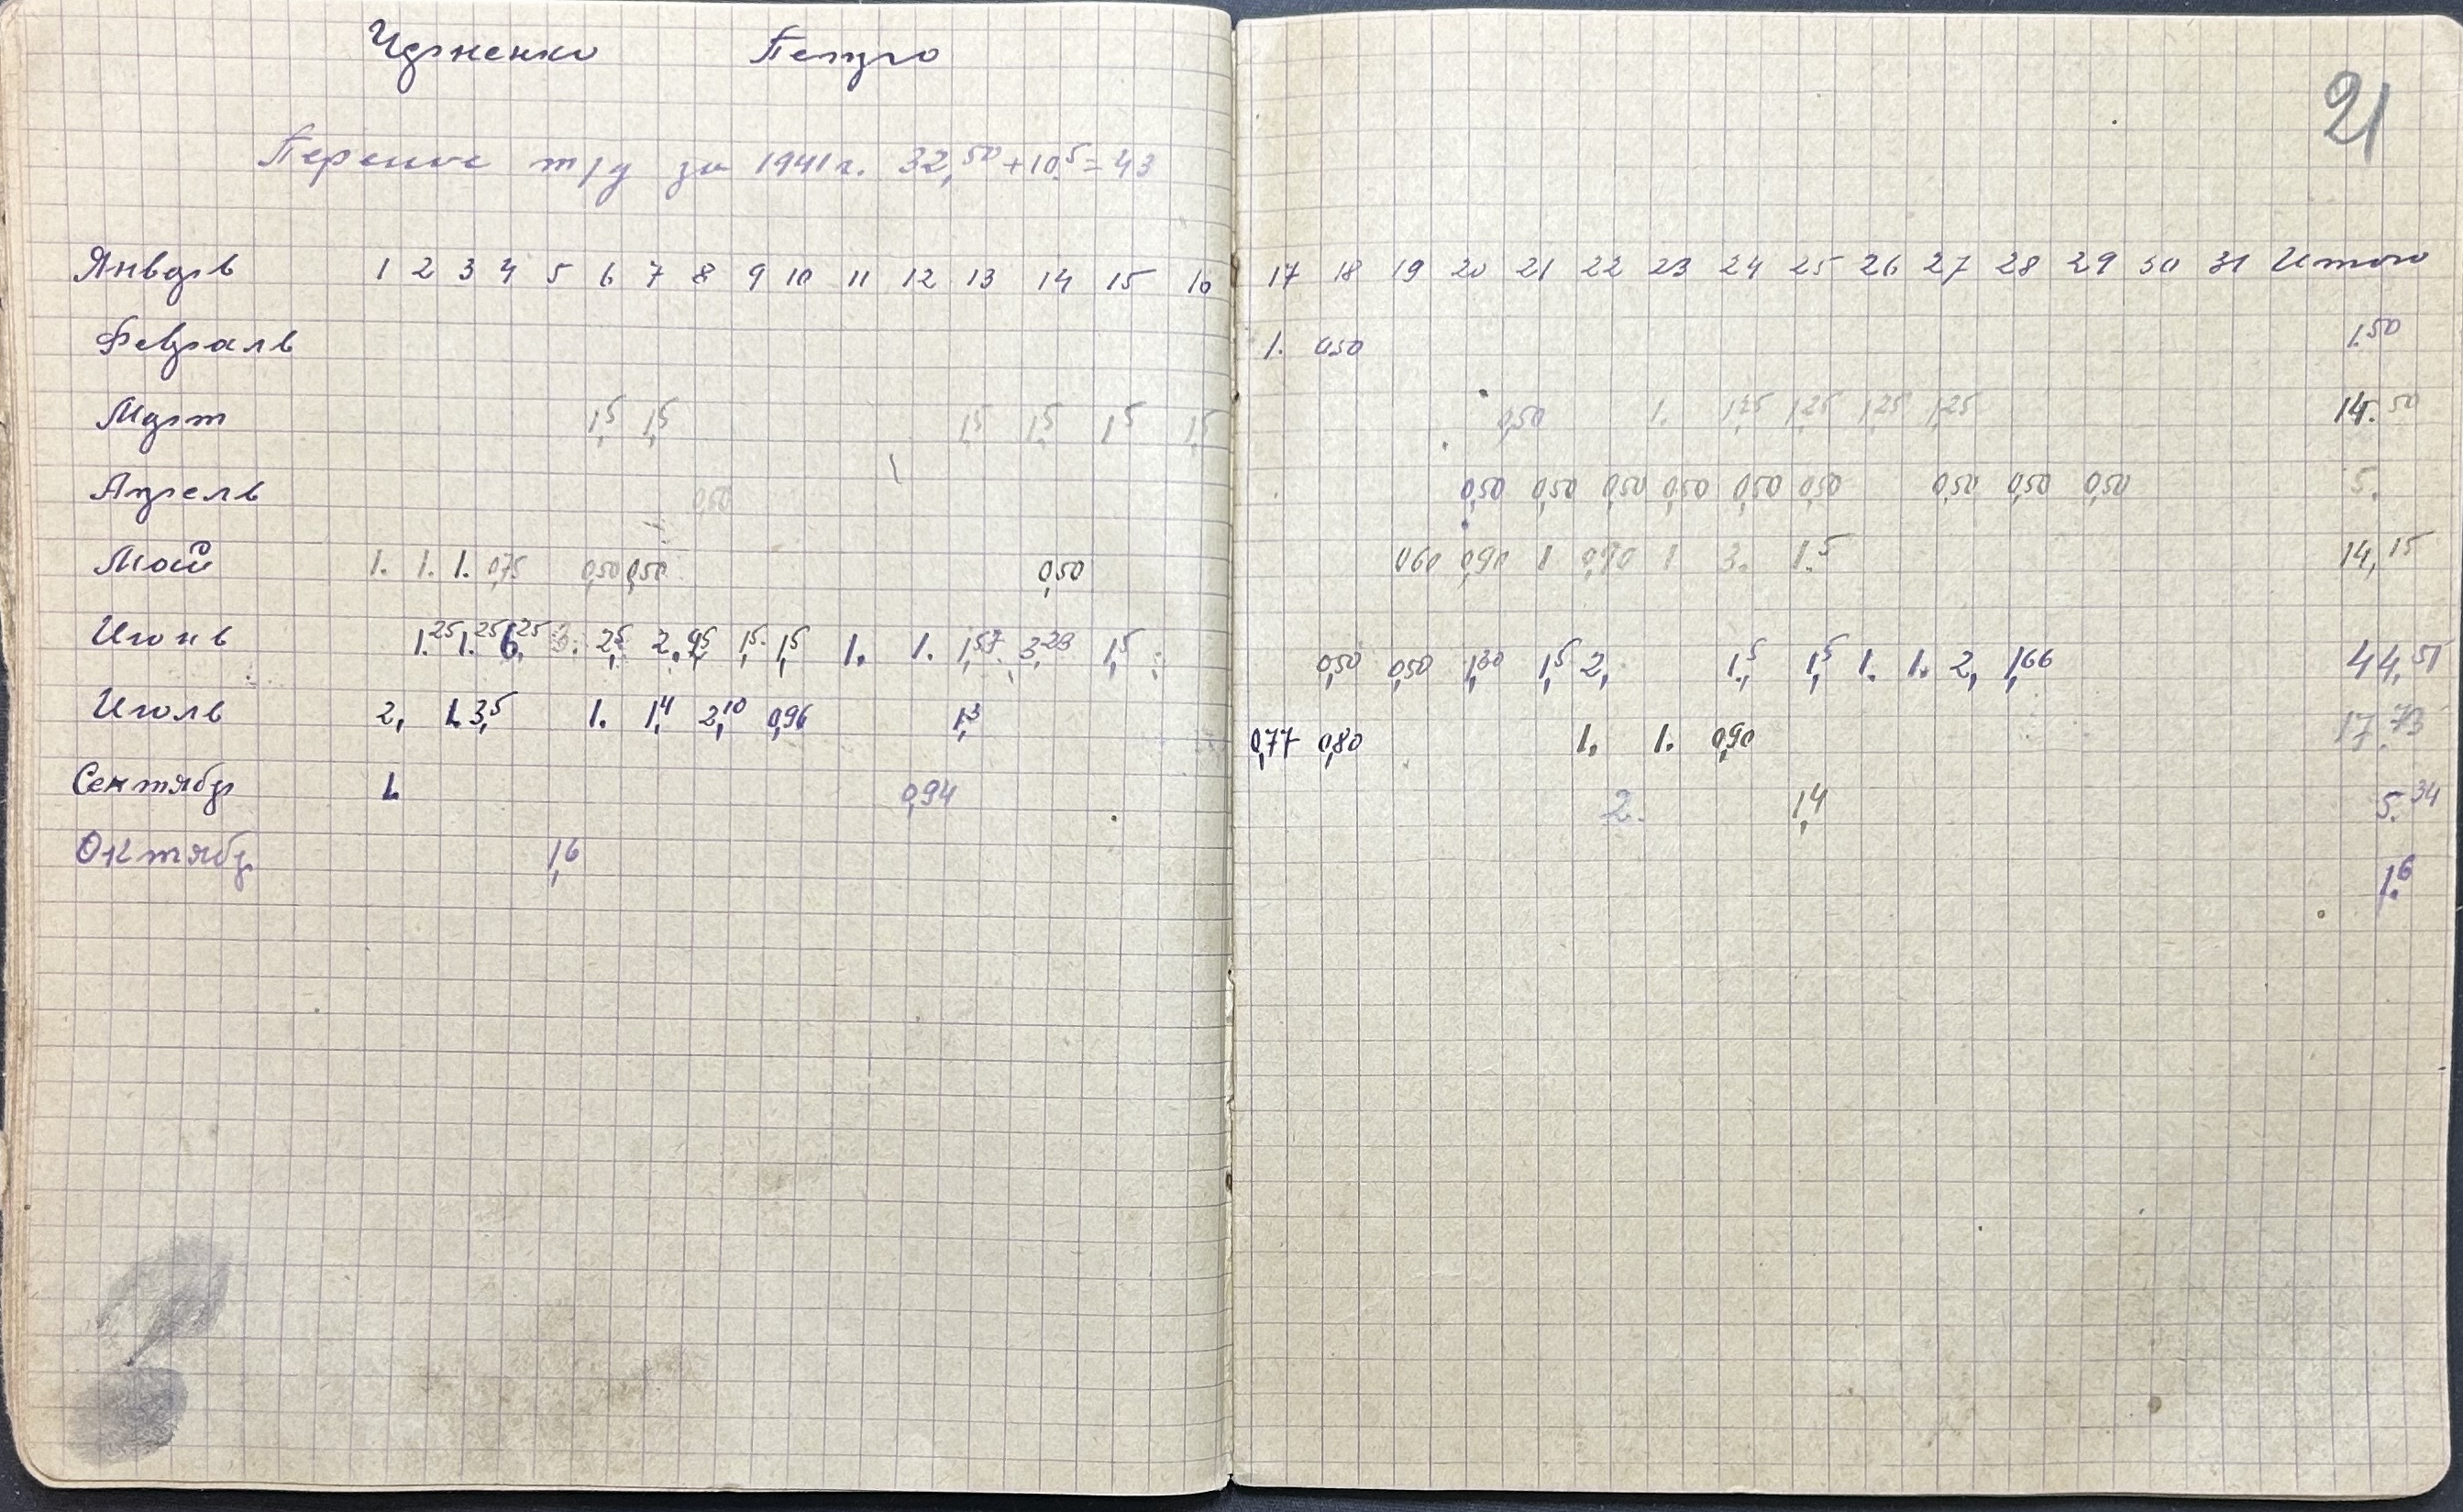 Черненко Петро
21
Перенос т/д за 1941 г. 32,50 + 10,5 = 43
Январь 1 2 3 4 5 6 7 8 9 10 11 12 13 14 15 16 17 18 19 20 21 22 23 24 25 26 27 28 29 30 31 Итого
Февраль 1. 0,50 1.50
Март 1,5 1,5 1,5 1,5 1,5 1,5 0,50 1. 1,25 1,25 1,25 14.50
Апрель 0,50 0,50 0,50 0,50 0,50 0,50 0,50 0,50 0,50 0,50 5.
Май 1. 1. 1. 0,75 0,50 0,50 0,50 0,60 0,90 1 0,90 1 3. 1.5 14,15
Июнь 1.25 1.25 6,25 3. 2,5 1,5 1,5 1. 1. 1,57 3,29 1,5 0,50 0,50 1,30 1,5 2, 1,5 1,5 1. 1. 2, 1,66 44,51
Июль 2, 1. 3,5 1. 1,4 2,10 0,96 1,3 0,77 0,80 1. 1. 0,90 17.73
Сентябр 1. 0,94 2. 1,4 5.34
Октябр 1,6 1.6